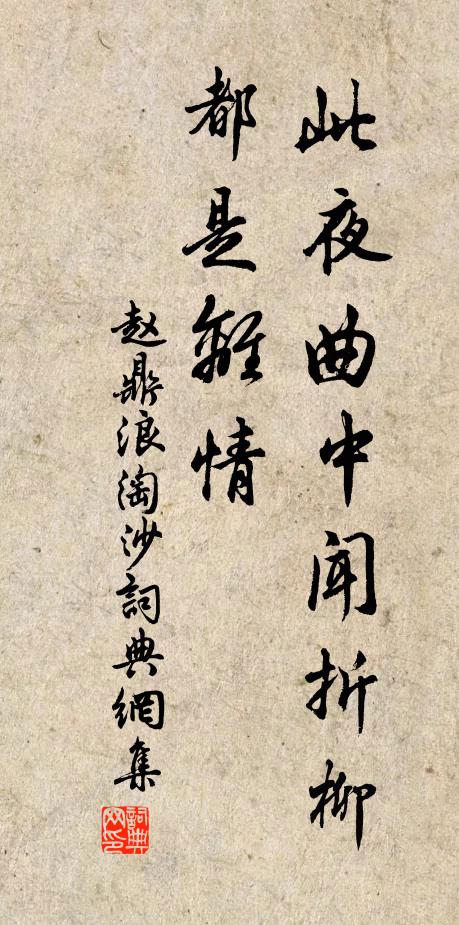 此夜曲中闻折柳
都是離情
赵鼎浪淘沙詞典網集
詞典网印